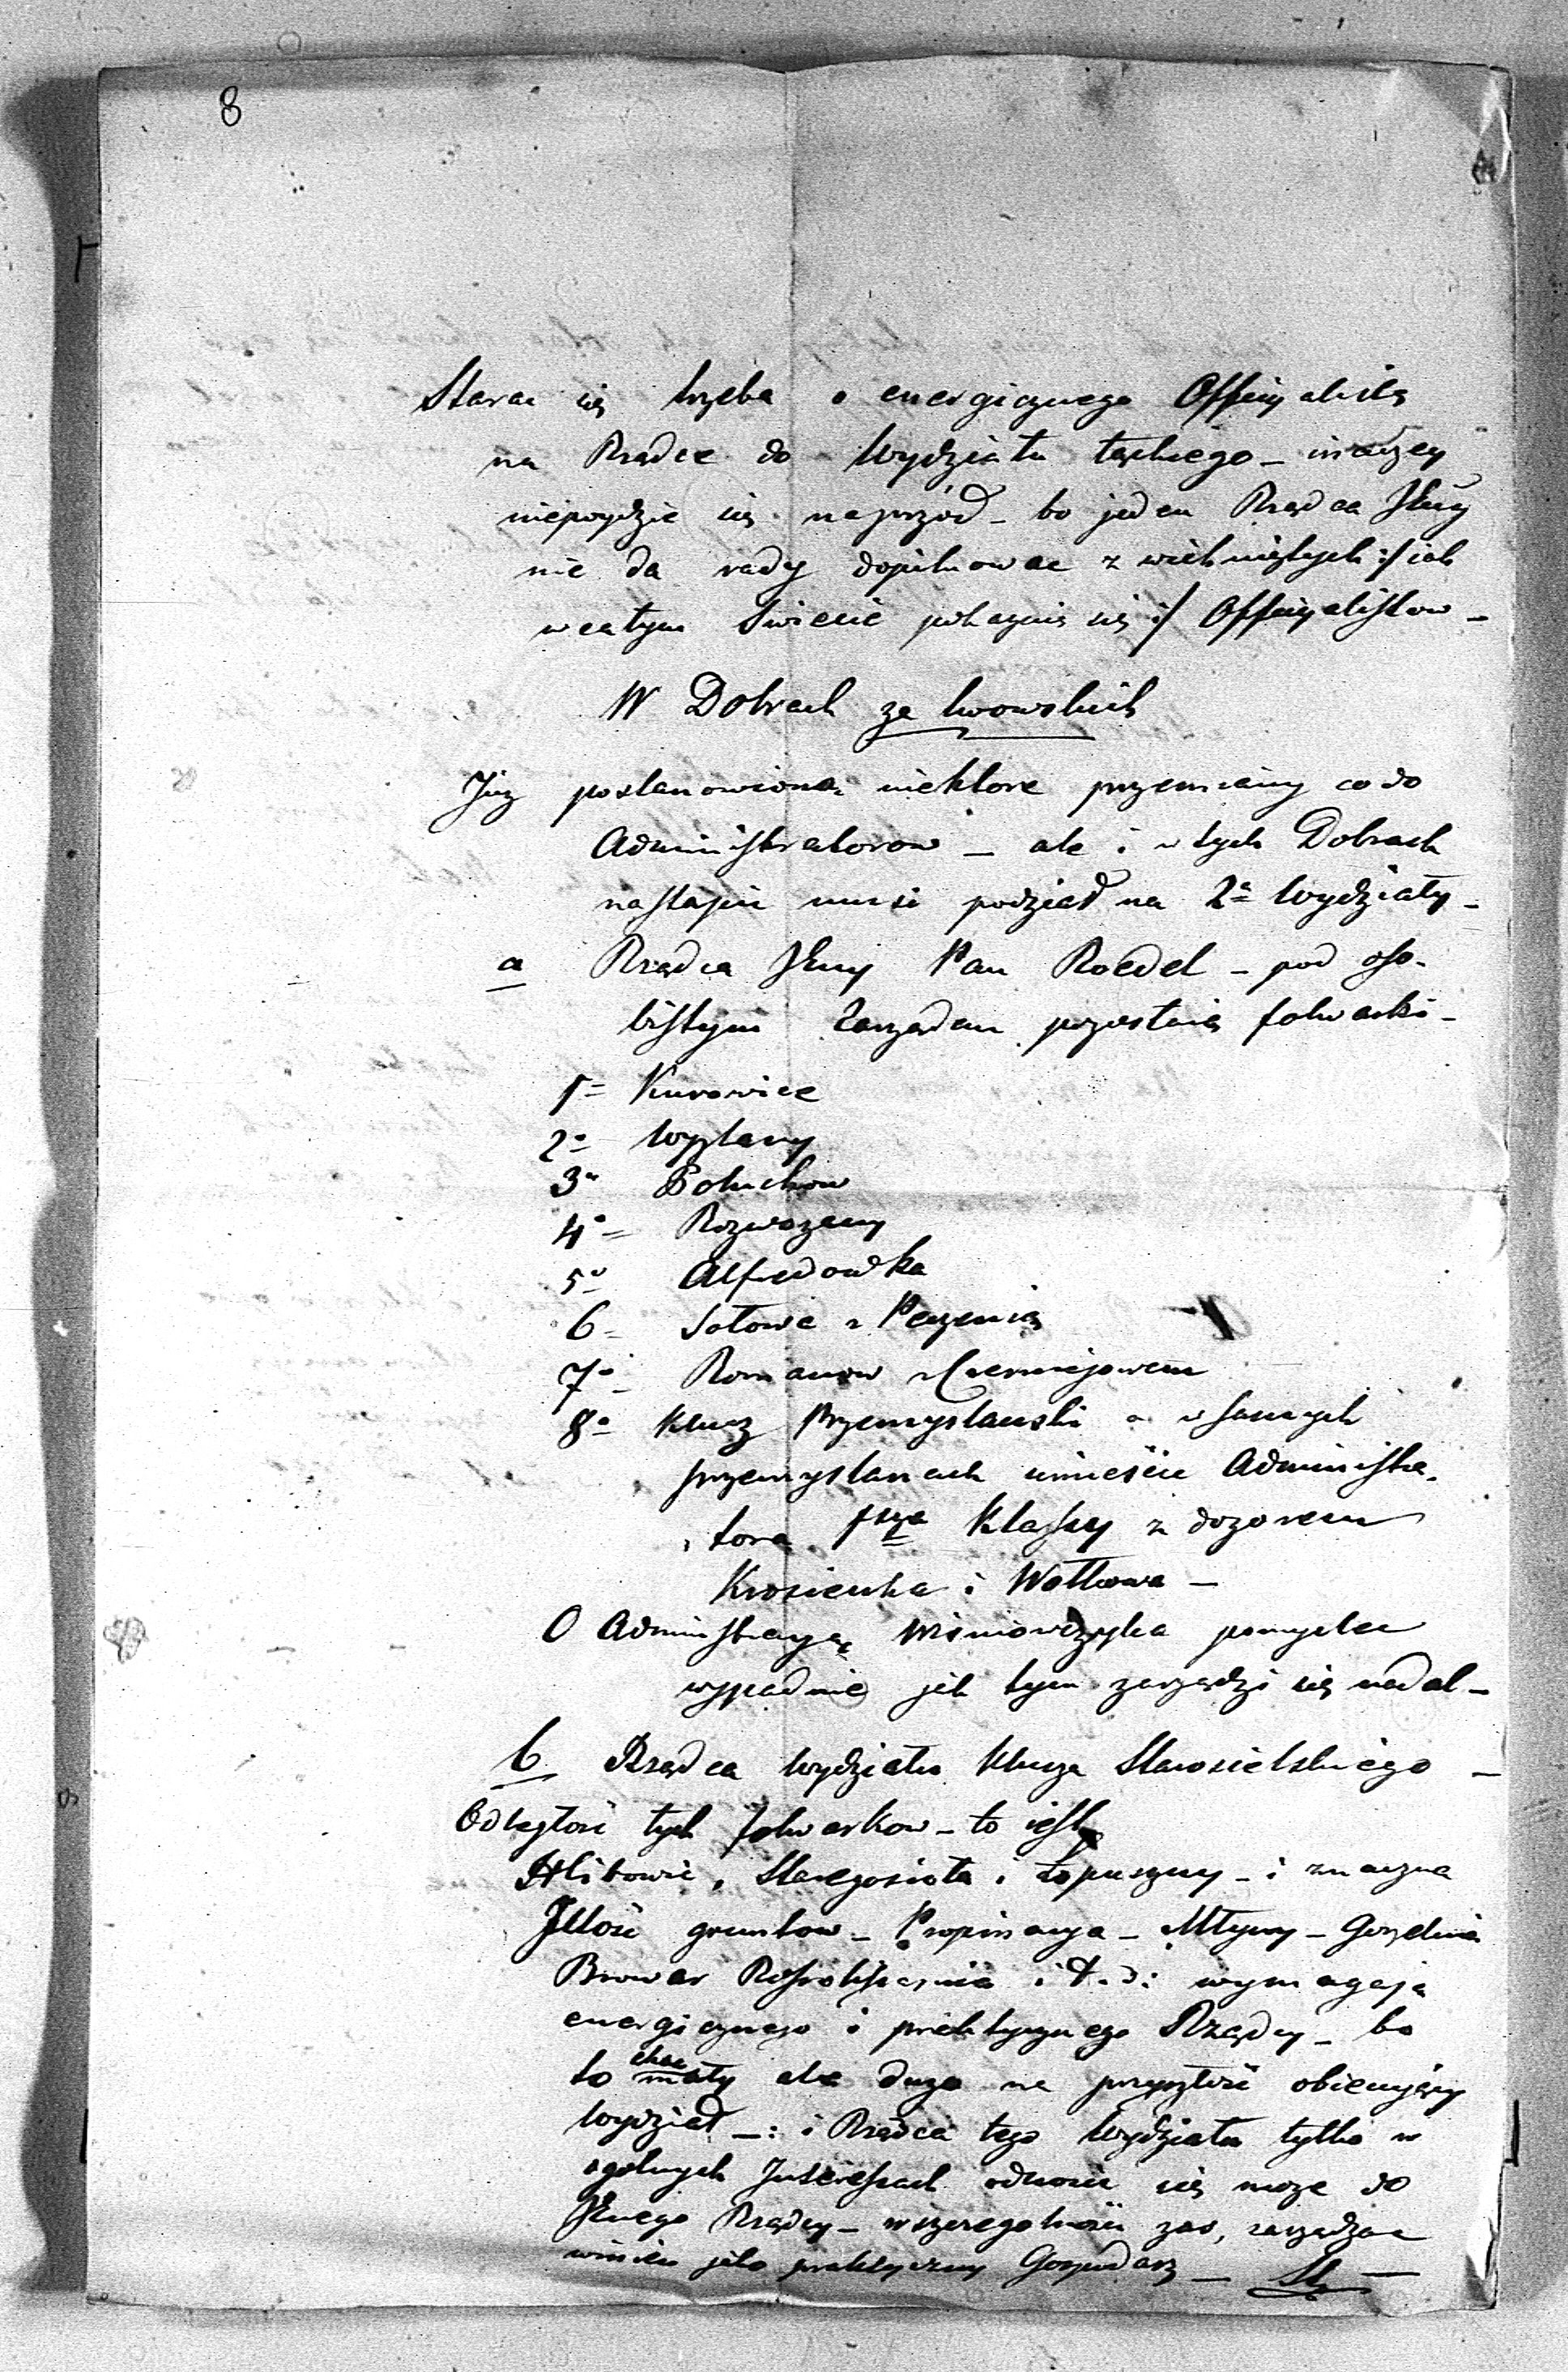 8
Starac się trzeba o energicznego Officyalistę
na Rządce do Wydziału Łąckiego – inaczey
niepoydzie się naprzód – bo jeden Rządca Jlny
nie da rady dopilnowac z :/ iak
w całym Swiecie :/ Officyalistow –
W Dobrach za lwowskich
Juz postanowiono niektore przemiany co do
Administratorow – ale i w tych Dobrach
nastąpic musi podział na 2a Wydziały –
a Rządca Jlny Pan Roedel – pod oso-
bistym Zarządem pozostaią folwarki –
1= Kurowice
2o Wypłany
3o Połuchow
4o= Rozworzany
5o Alfredowka
6= Sołowa z Peczenią
7o Romanow z Czerniejowem
8o Klucz Przemyslanski a w samych
przemyslanach umieścic Administra-
tora 1szej Klassy z dozorem
Krosienka i Wołkowa –
O Administracyą Wisniowczyka pomyslec
wypadnie jak tym zarządzi się nadal –
b Rządca Wydziału Klucza Starosielskiego –
Odległosć tych folwarkow – to iest
Hlibowic, Staregosioła i Łopuszny – i znaczna
Jllość gruntow – Propinacya – Młyny – Gorzelnia
Browar i t. d: wymagają
energicznego i praktycznego Rządcy – bo
to choc mały ale duzo na przyszłość obiecujący
Wydział –: i Rządca tego Wydziału tylko w
ogolnych Interessach odnosic się moze do
Jlnego Rządcy – w szczegolnosci zas, zarządzac
winien jako praktyczny Gospodarz –